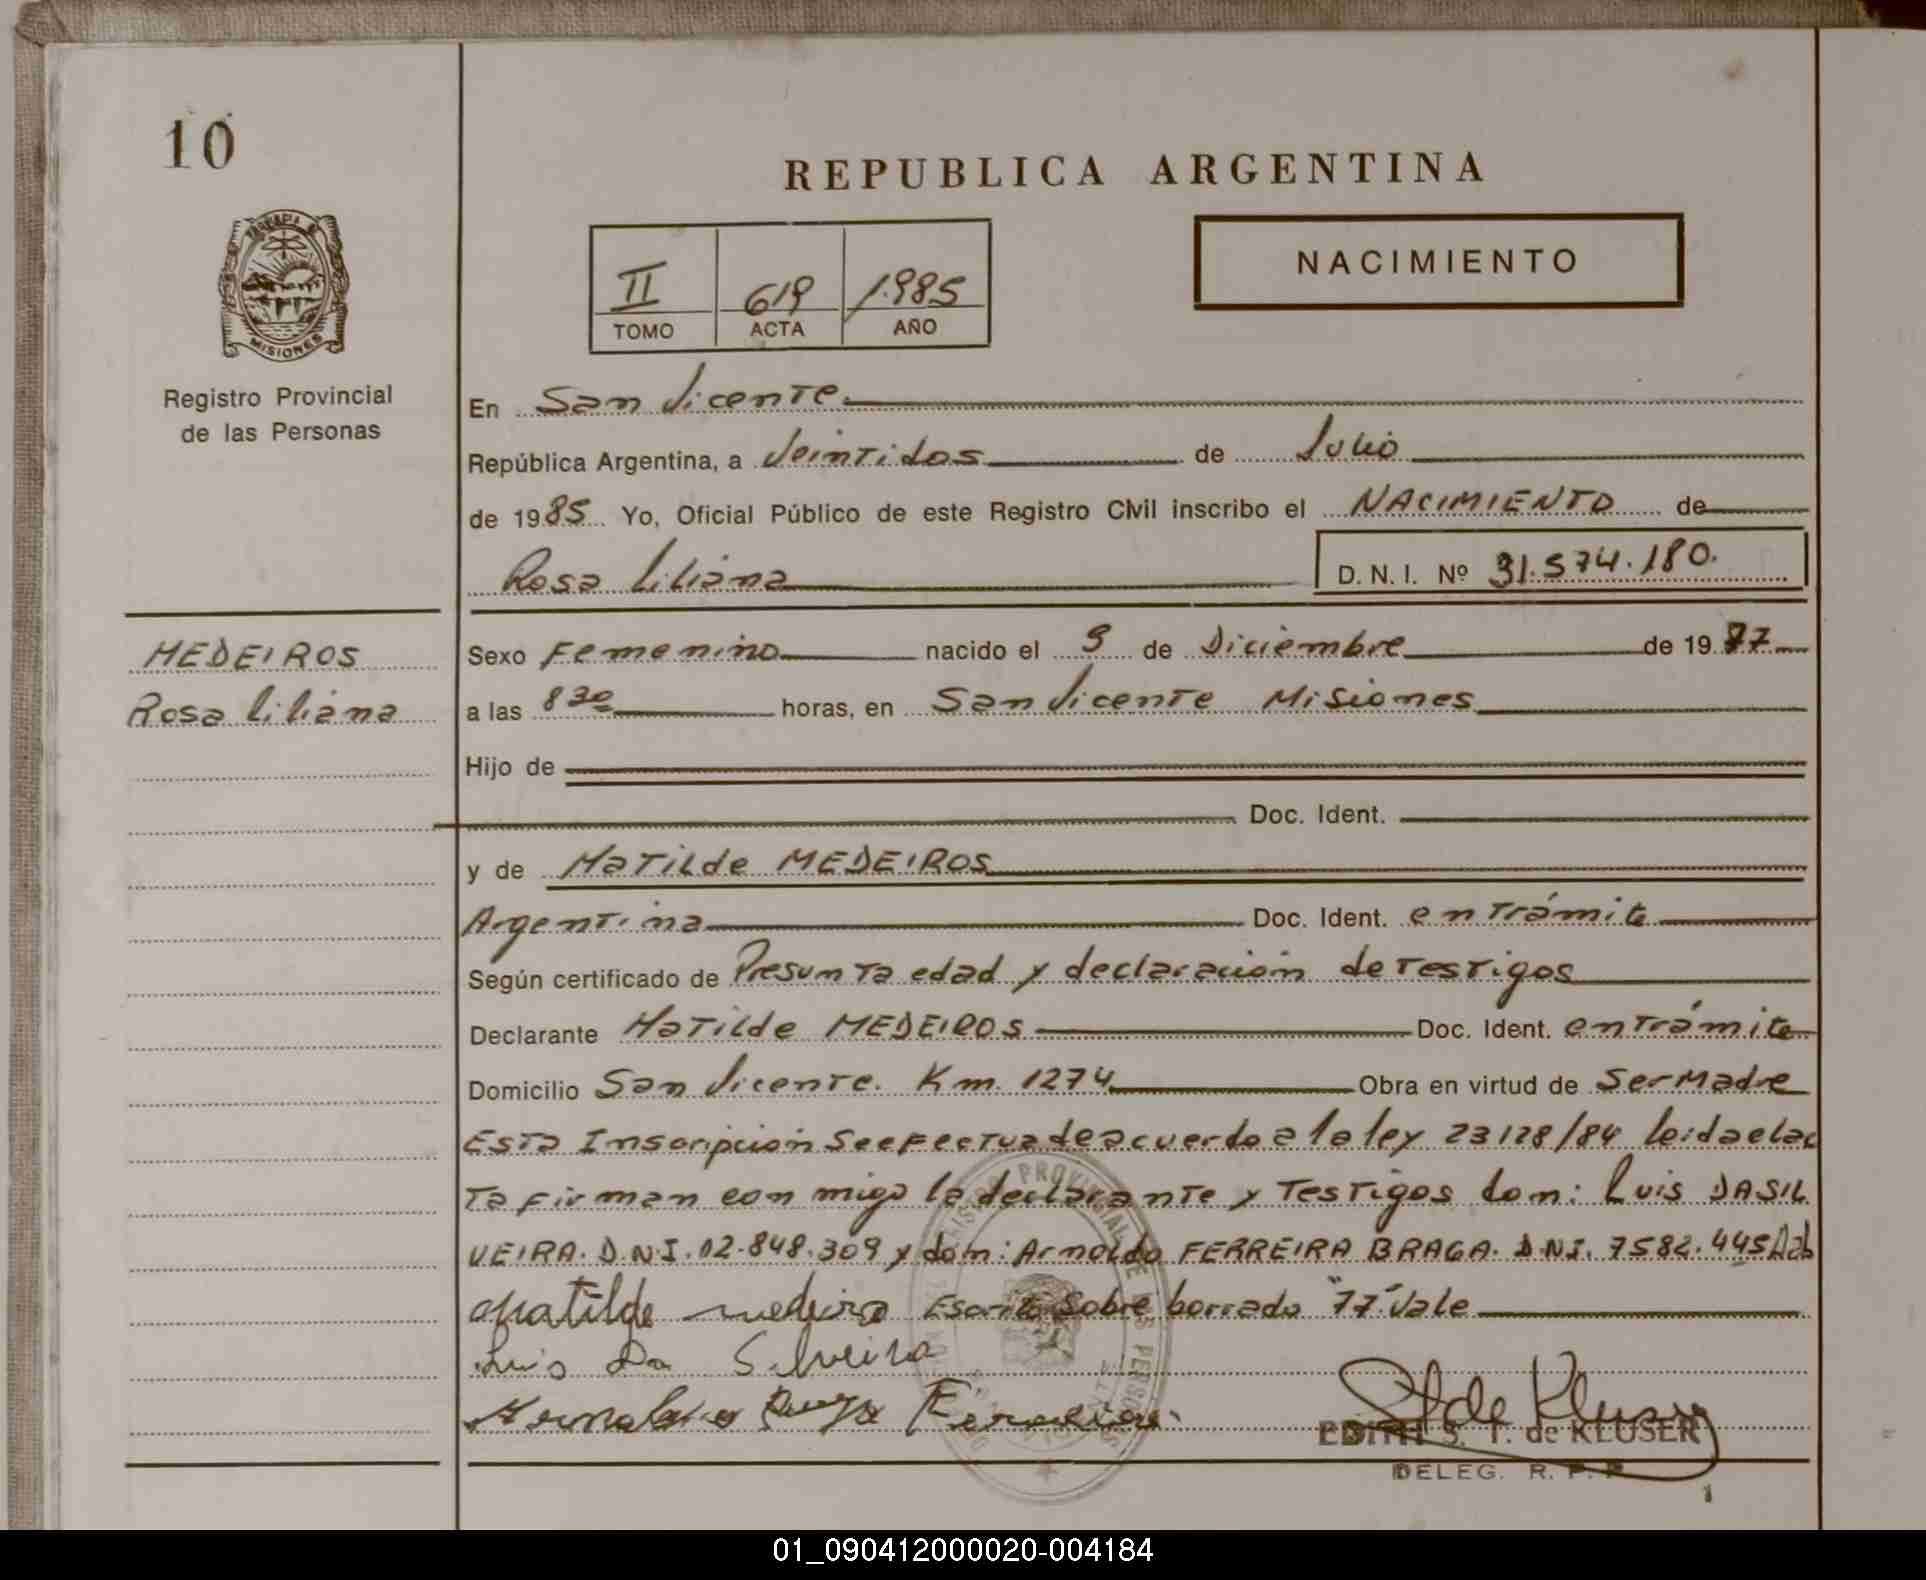 10
REPUBLICA ARGENTINA
NACIMIENTO
II 619 1985
TOMO ACTA AÑO
PROVINCIA DE
MISIONES
Registro Provincial
de las Personas
En San Vicente
República Argentina, a Veintidos de Julio
de 1985 Yo, Oficial Público de este Registro Civil inscribo el NACIMIENTO de
Rosa Liliana D. N. I. Nº 31.574.180.
MEDEIROS
Rosa Liliana
Sexo Femenino nacido el 9 de Diciembre de 1977
a las 8 30 horas, en San Vicente Misiones
Hijo de
Doc. Ident.
y de Matilde MEDEIROS
Argentina Doc. Ident. en trámite
Según certificado de Presunta edad y declaración de testigos
Declarante Matilde MEDEIROS Doc. Ident. en trámite
Domicilio San Vicente. Km. 1274 Obra en virtud de Ser Madre
Esta Inscripción Se efectua de acuerdo a la ley 23128/84 leida el ac
ta firman con migo la declarante y Testigos don: Luis DASIL
VEIRA. D.N.I. 12.848.309 y don: Arnoldo FERREIRA BRAGA. D.N.I. 7582.445
Matilde medeiro Escrito Sobre borrado "77" Vale
Luis Da Silveira
EDITH S. T. de KLUSER
DELEG. R. P. P.
01_090412000020-004184